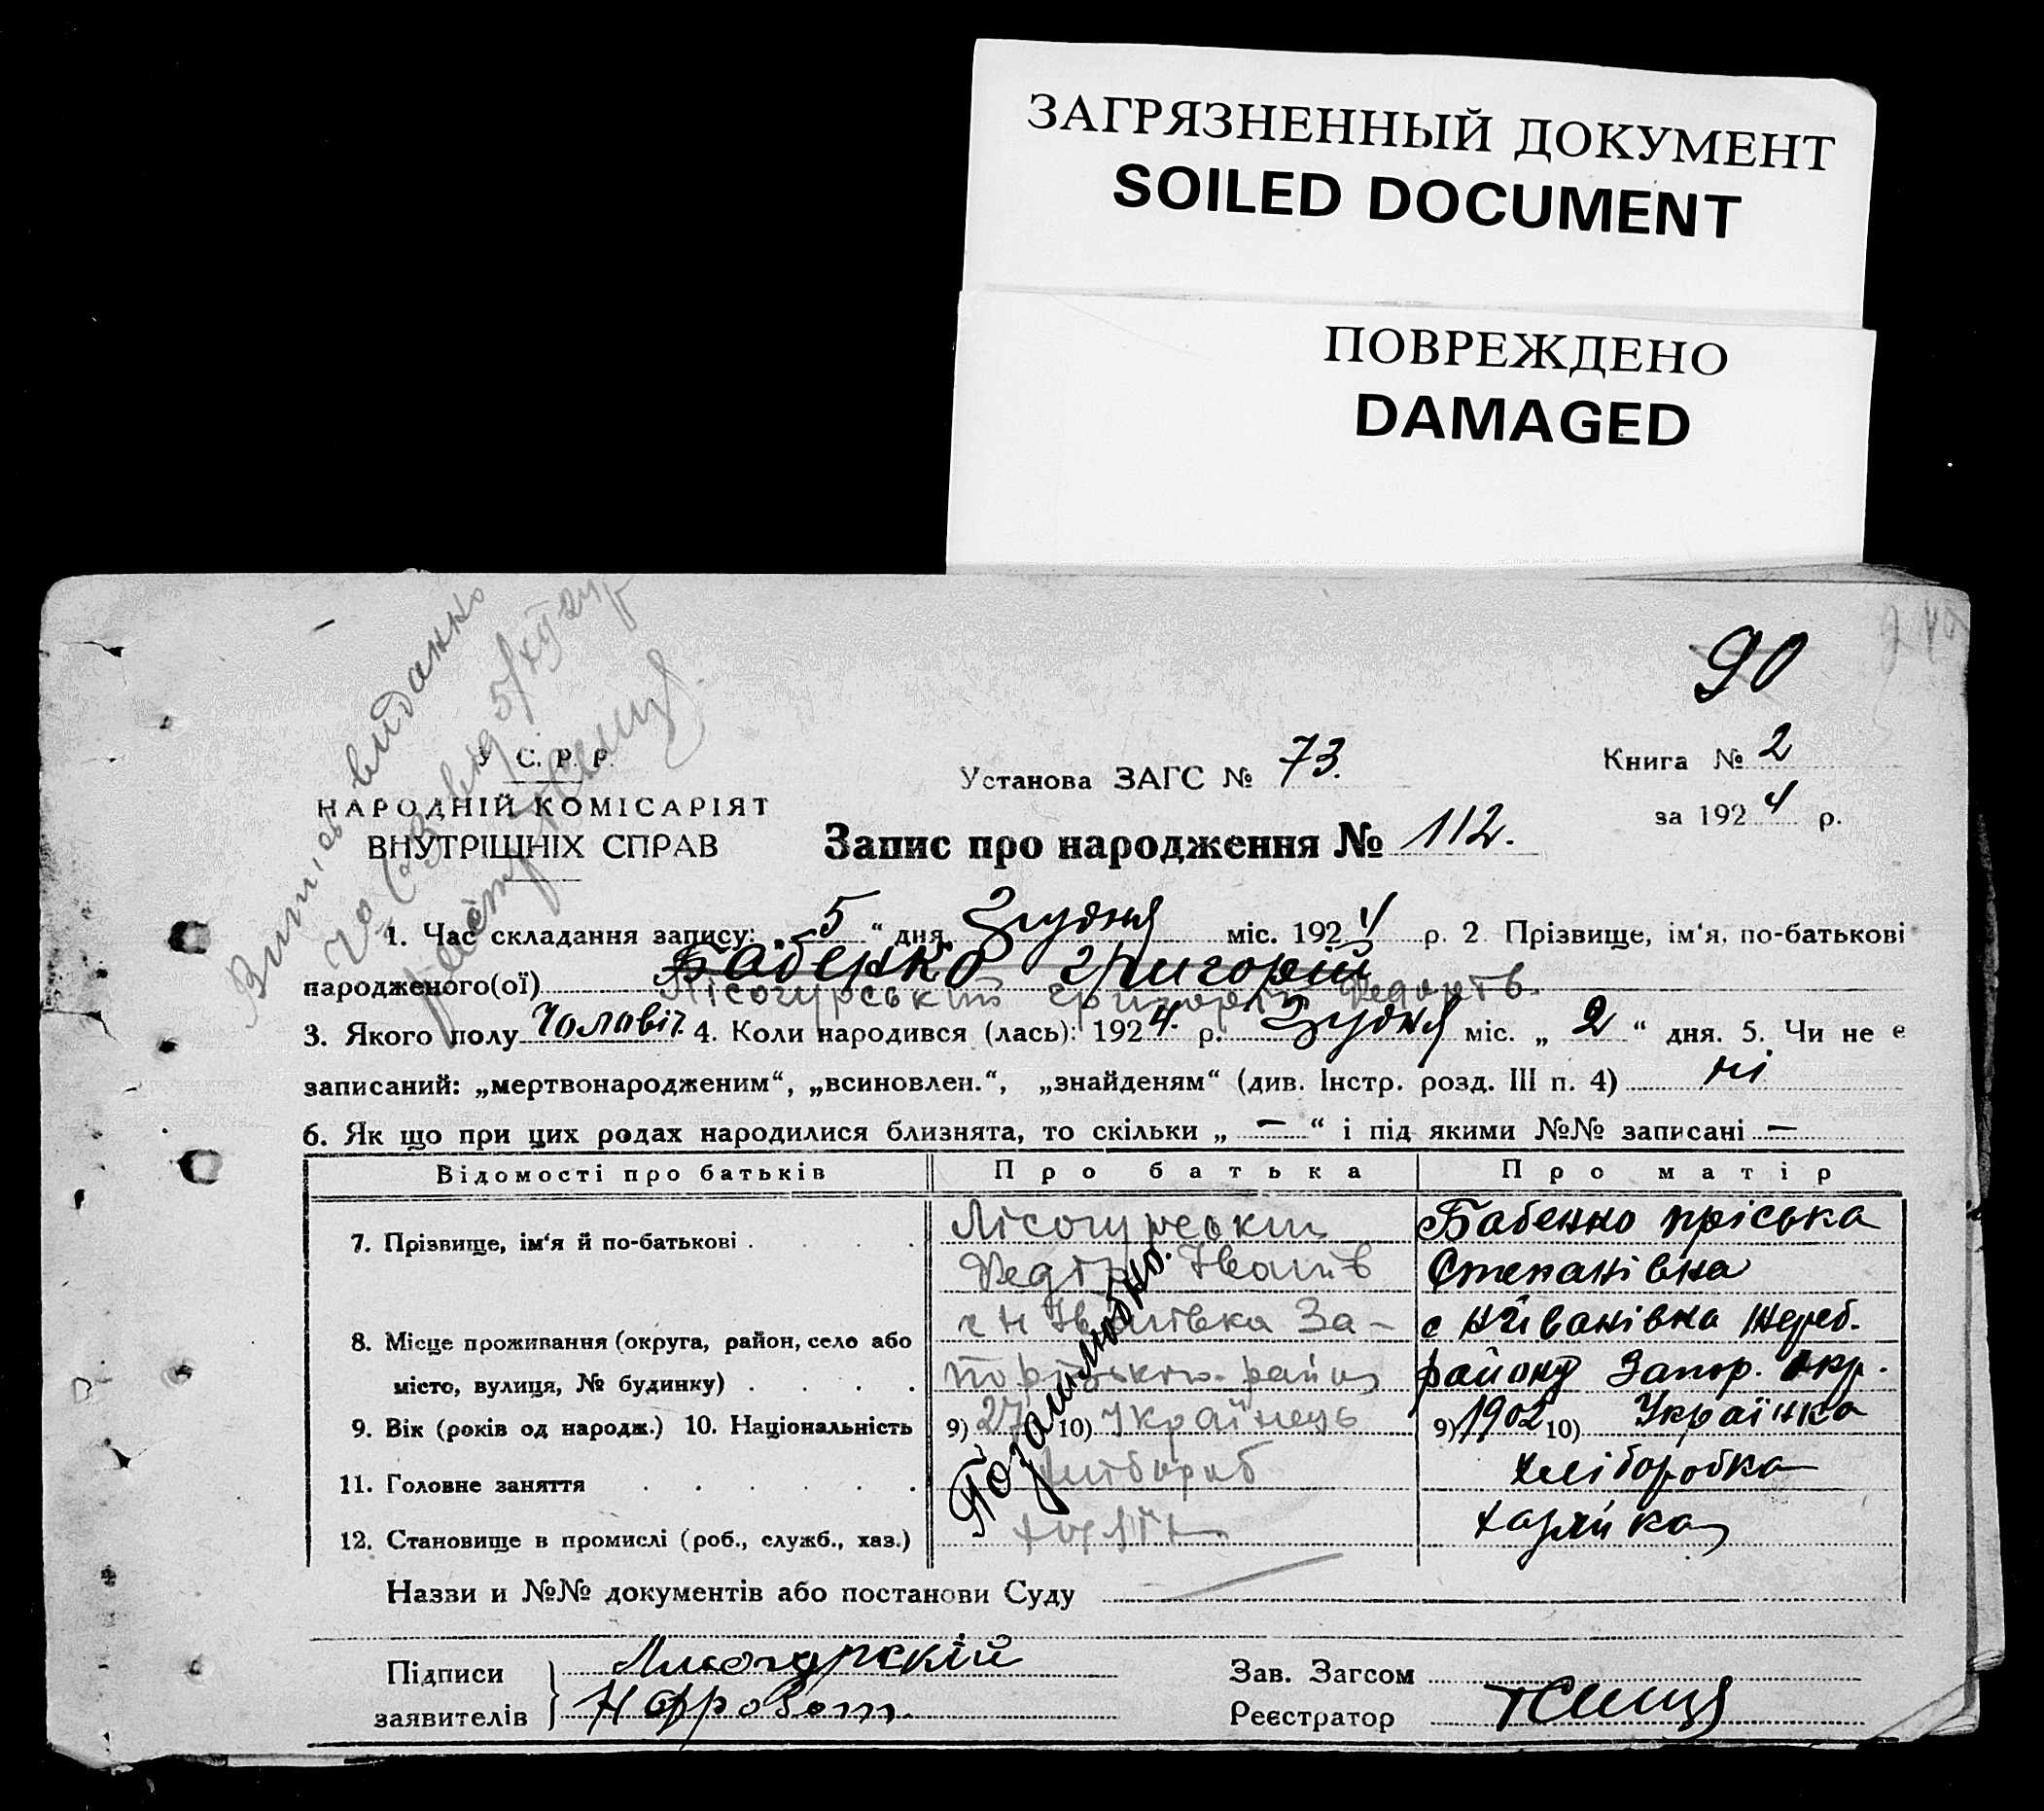 ЗАГРЯЗНЕННЫЙ ДОКУМЕНТ
SOILED DOCUMENT
ПОВРЕЖДЕНО
DAMAGED
90
видано
У С. Р. Р.
НАРОДНІЙ КОМІСАРІЯТ
ВНУТРІШНІХ СПРАВ
Установа ЗАГС № 73.
Книга № 2
за 1924 р.
Запис про народження № 112.
1. Час складання запису: „5“ дня Грудня міс. 1924 р. 2 Прізвище, ім‘я, по-батькові
народженого(ої) Бабенко Григорій
Лісогурський Григорій Федорів.
3. Якого полу Чоловіч. 4. Коли народився (лась): 1924. р. Грудня міс. „2“ дня. 5. Чи не є
записаний: „мертвонародженим“, „всиновлен.“, „знайденям“ (див. Інстр. розд. III п. 4) ні
6. Як що при цих родах народилися близнята, то скільки „—“ і під якими №№ записані —
Відомості про батьків Про батька Про матір
7. Прізвище, ім‘я й по-батькові Лісогурський Бабенко Пріська
Федір Іванів Степанівна
8. Місце проживання (округа, район, село або с Н Іванівка За- с Н Іванівка Жереб.
місто, вулиця, № будинку) району Запор. Окр.
9. Вік (років од народж.) 10. Національність 9) 27 10) Українець 9) 1902 10) Українка
11. Головне заняття хлібороб хліборобка
12. Становище в промислі (роб., служб., хаз.) хазяїн хазяйка
Позашлюбно.
Назви и №№ документів або постанови Суду
Підписи
заявителів
Лисогурскій
Зав. Загсом
Реєстратор